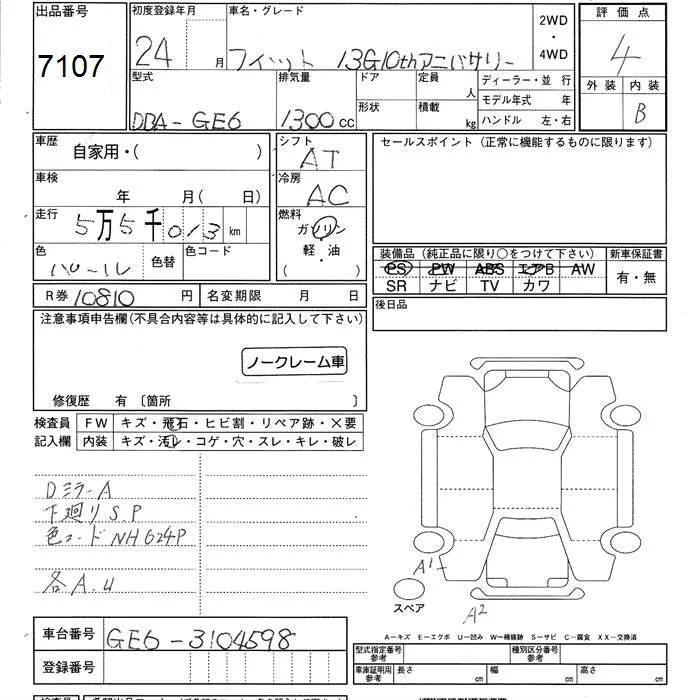 出品番号
7107
初度登録年月
24 月
車名・グレード
フィット 13G10thアニバサリー
2WD
・
4WD
評価点
4
外装 内装
B
型式
DBA-GE6
排気量
1300cc
ドア
形状
定員
人
積載
kg
ディーラー・並行
モデル年式 年
ハンドル 左・右
車歴
自家用・( )
シフト
AT
セールスポイント(正常に機能するものに限ります)
車検
年 月( 日)
冷房
AC
走行
5万5千013km
燃料
ガソリン
・
軽・油
( )
色
パール
色替
色コード
装備品(純正品に限り○をつけて下さい)
PS PW ABS エアB AW
SR ナビ TV カワ
新車保証書
有・無
R券 10810円
名変期限 月 日
後日品
注意事項申告欄(不具合内容等は具体的に記入して下さい)
ノークレーム車
修復歴 有〔箇所 〕
検査員
記入欄
FW キズ・飛石・ヒビ割・リペア跡・×要
内装 キズ・汚レ・コゲ・穴・スレ・キレ・破レ
DミラーA
下廻りS.P
色コードNH624P
各A.U
A1
スペア
A2
A-キズ E-エクボ U-凹み W-補修跡 S-サビ C-腐食 XX-交換済
車台番号
GE6-3104598
登録番号
型式指定番号
参考
種別区分番号
参考
車庫証明用
参考
長さ cm
幅 cm
高さ cm